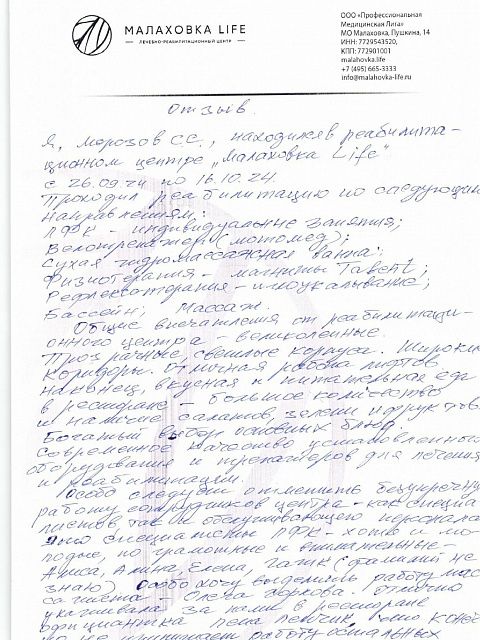 МАЛАХОВКА LIFE
ЛЕЧЕБНО-РЕАБИЛИТАЦИОННЫЙ ЦЕНТР
ООО «Профессиональная
Медицинская Лига»
МО Малаховка, Пушкина, 14
ИНН: 7729543520,
КПП: 772901001
malahovka.life
+7 (495) 665-3333
info@malahovka-life.ru
Отзыв.
Я, Морозов С.С., находился в реабилита-
ционном центре „Малаховка Life"
с 26.09.24 по 16.10.24.
Проходил реабилитацию по следующим
направлениям:
ЛФК - индивидуальные занятия;
Велотренажер (мотомед);
Сухая гидромассажная ванна;
Физиотерапия - магниты Talent;
Рефлексотерапия - иглоукалывание;
Бассейн; Массаж.
Общие впечатления от реабилитаци-
онного центра - великолепные.
Прозрачные, светлые корпуса. Широкие
коридоры. Отличная работа лифтов,
наконец, вкусная и питательная еда
в ресторане - большое количество
и наличие салатов, зелени и фруктов.
Богатый выбор основных блюд.
Современное качество установленного
оборудования и тренажеров для лечения
и реабилитации.
Особо следует отметить безупречную
работу сотрудников центра - как специа
листов, так и обслуживающего персонала
специалисты ЛФК - хотя и мо-
лодые, но грамотные и внимательные -
Алиса, Алина, Елена, (фамилий не
знаю) Особо хочу выделить работу мас
сажиста - Олега Отлично
ухаживала за нами в ресторане
официантка